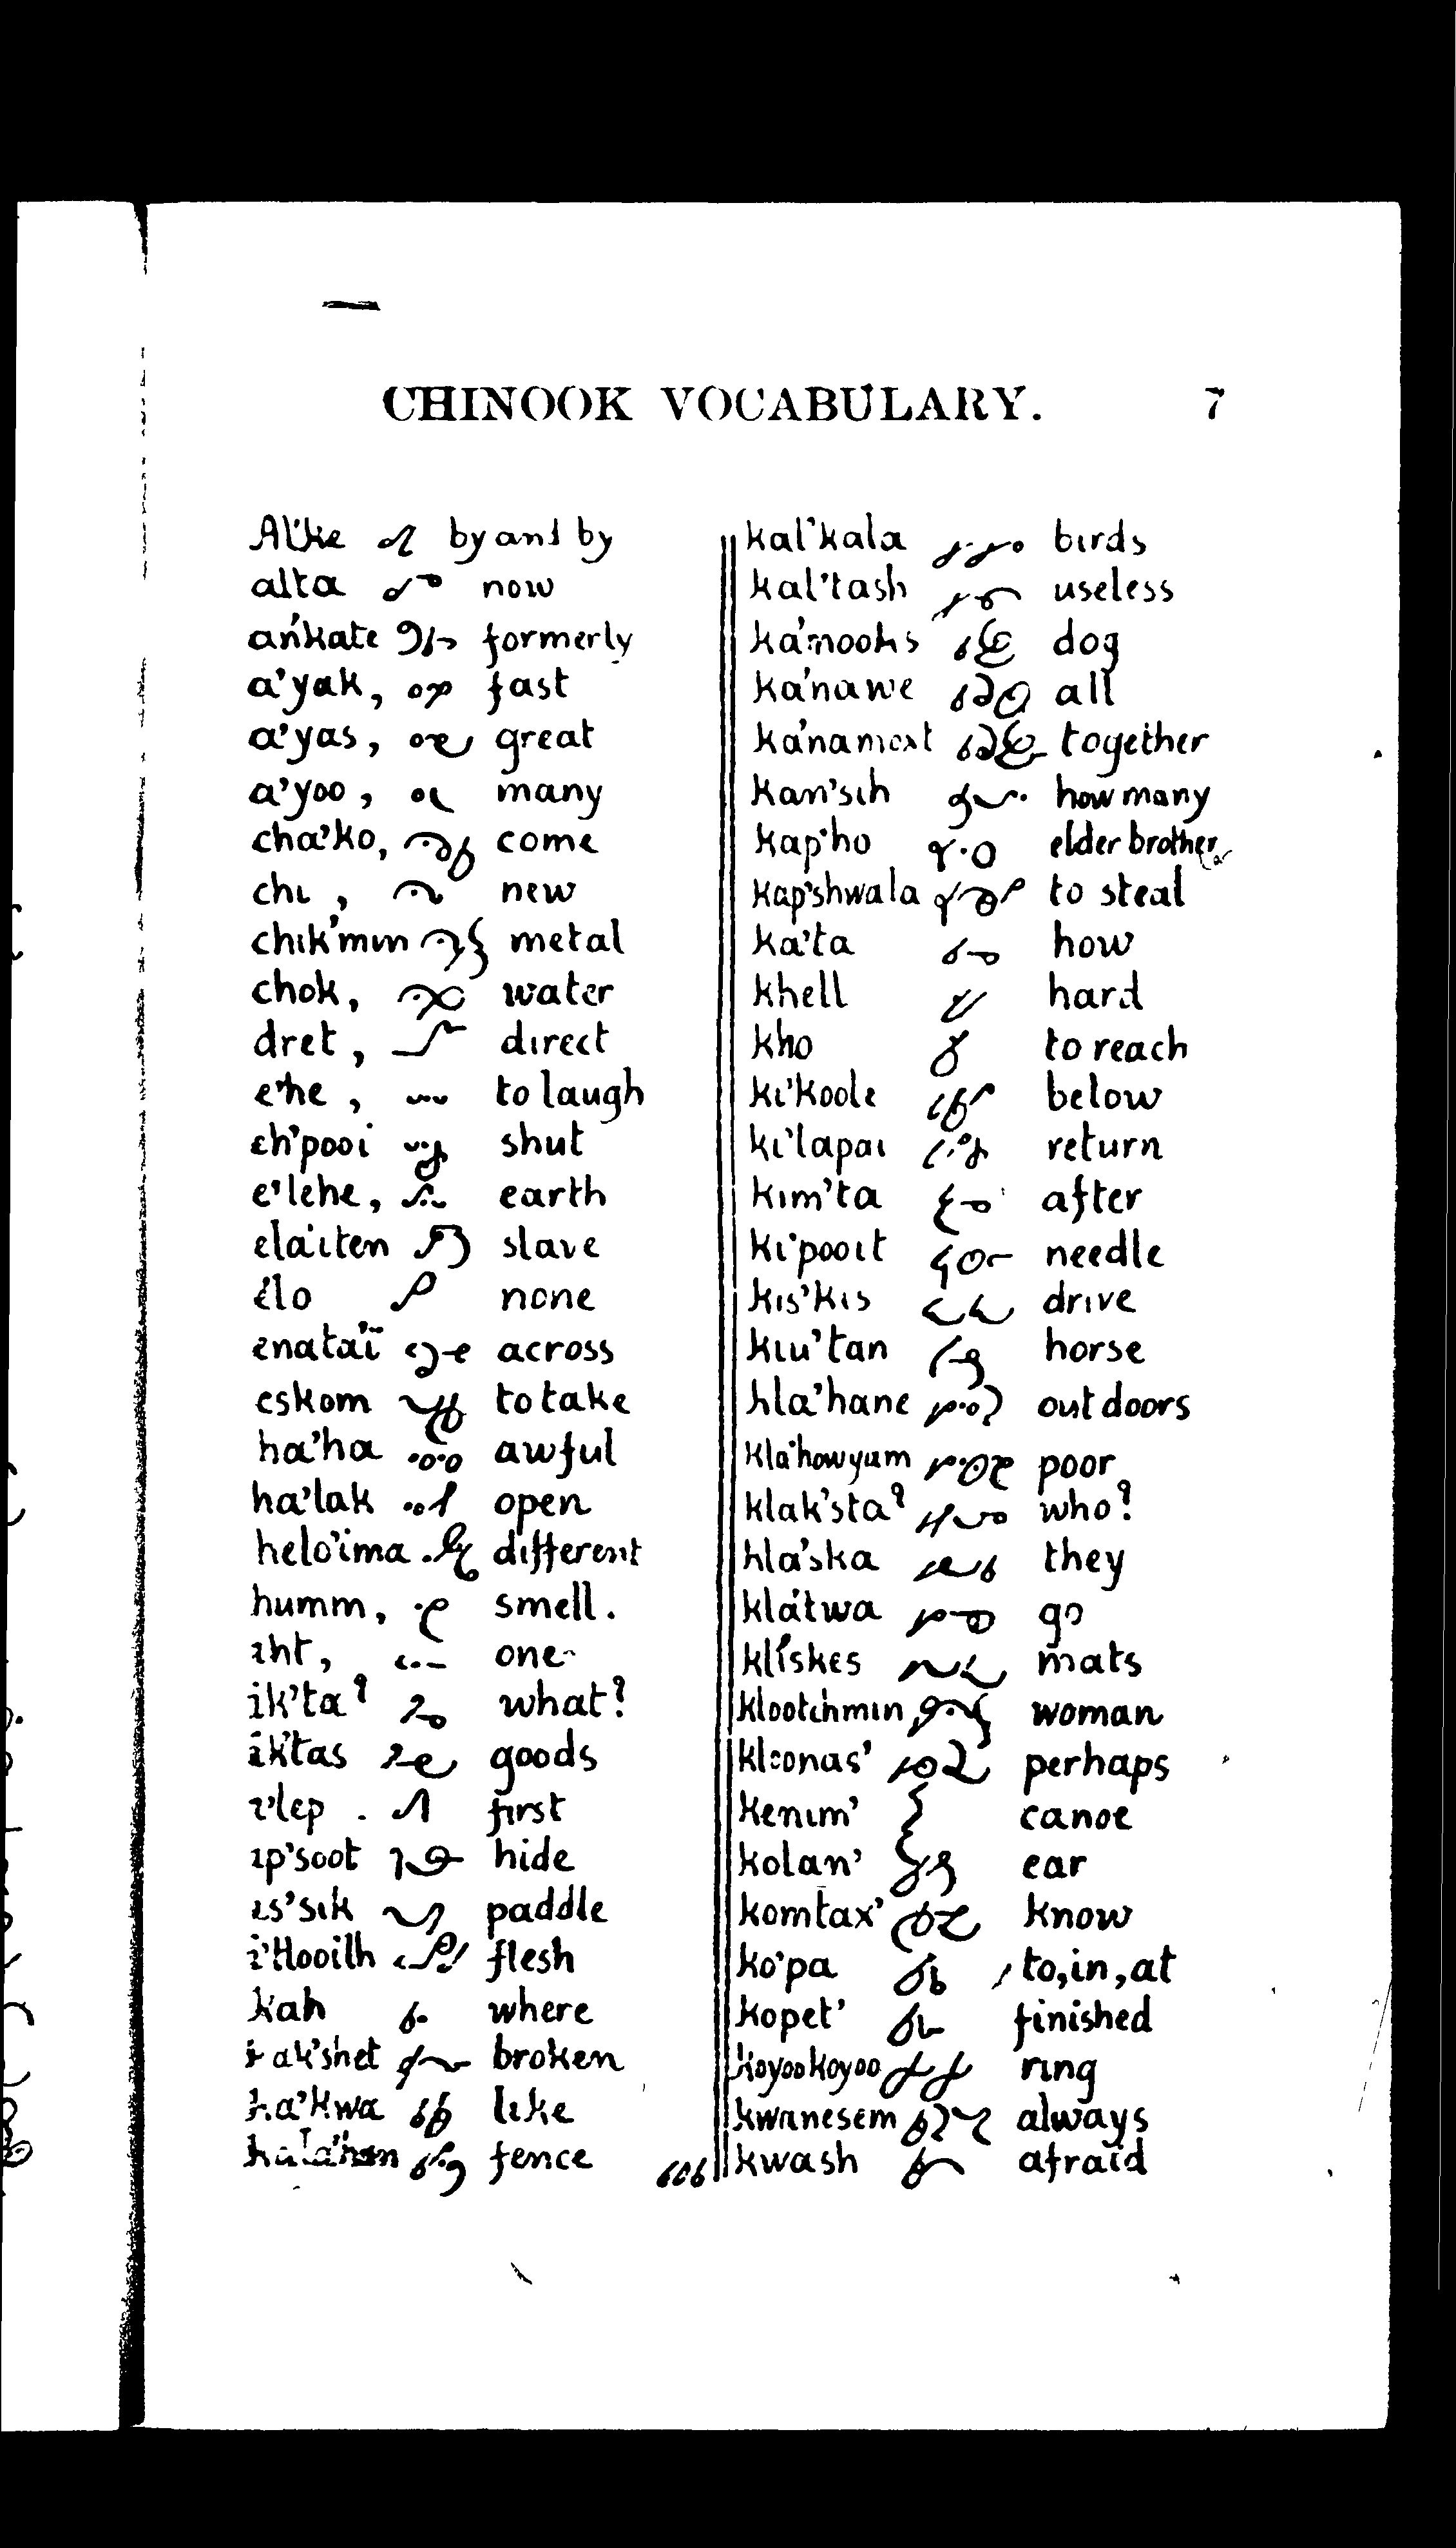 CHINOOK VOCABULARY. 7
Alke by and by
alta now
ańkate formerly
a'yak, fast
a'yas, great
a'yoo, many
cha'ko, come
chi, new
chik'min metal
chok, water
dret, direct
e'he, to laugh
eh'pooi shut
e'lehe, earth
ela'iten slave
élo none
enata'ï across
eskom to take
ha'ha awful
ha'lak open
helo'ima different
humm, smell.
iht, one
ik'ta? what?
iktas goods
i'lep first
ip'soot hide
is'sik paddle
i'tlooilh flesh
kah where
kak'shet broken
ka'kwa like
fence
kal'kala birds
kal'tash useless
ka'mooks dog
ka'nawe all
ka'namoxt together
kan'sih how many
kap'ho elder brother
kap'shwala to steal
ka'ta how
khell hard
kho to reach
ki'koole below
ki'lapai return
kim'ta after
ki'pooit needle
kis'kis drive
kiu'tan horse
kla'hane out doors
kla'howyam poor
klak'sta? who?
kla'ska they
klátwa go
klískes mats
klootchmin woman
kloonas' perhaps
kenim' canoe
kolan' ear
komtax' know
ko'pa to, in, at
kopet' finished
koyoo koyoo ring
kwanesem always
kwash afraid